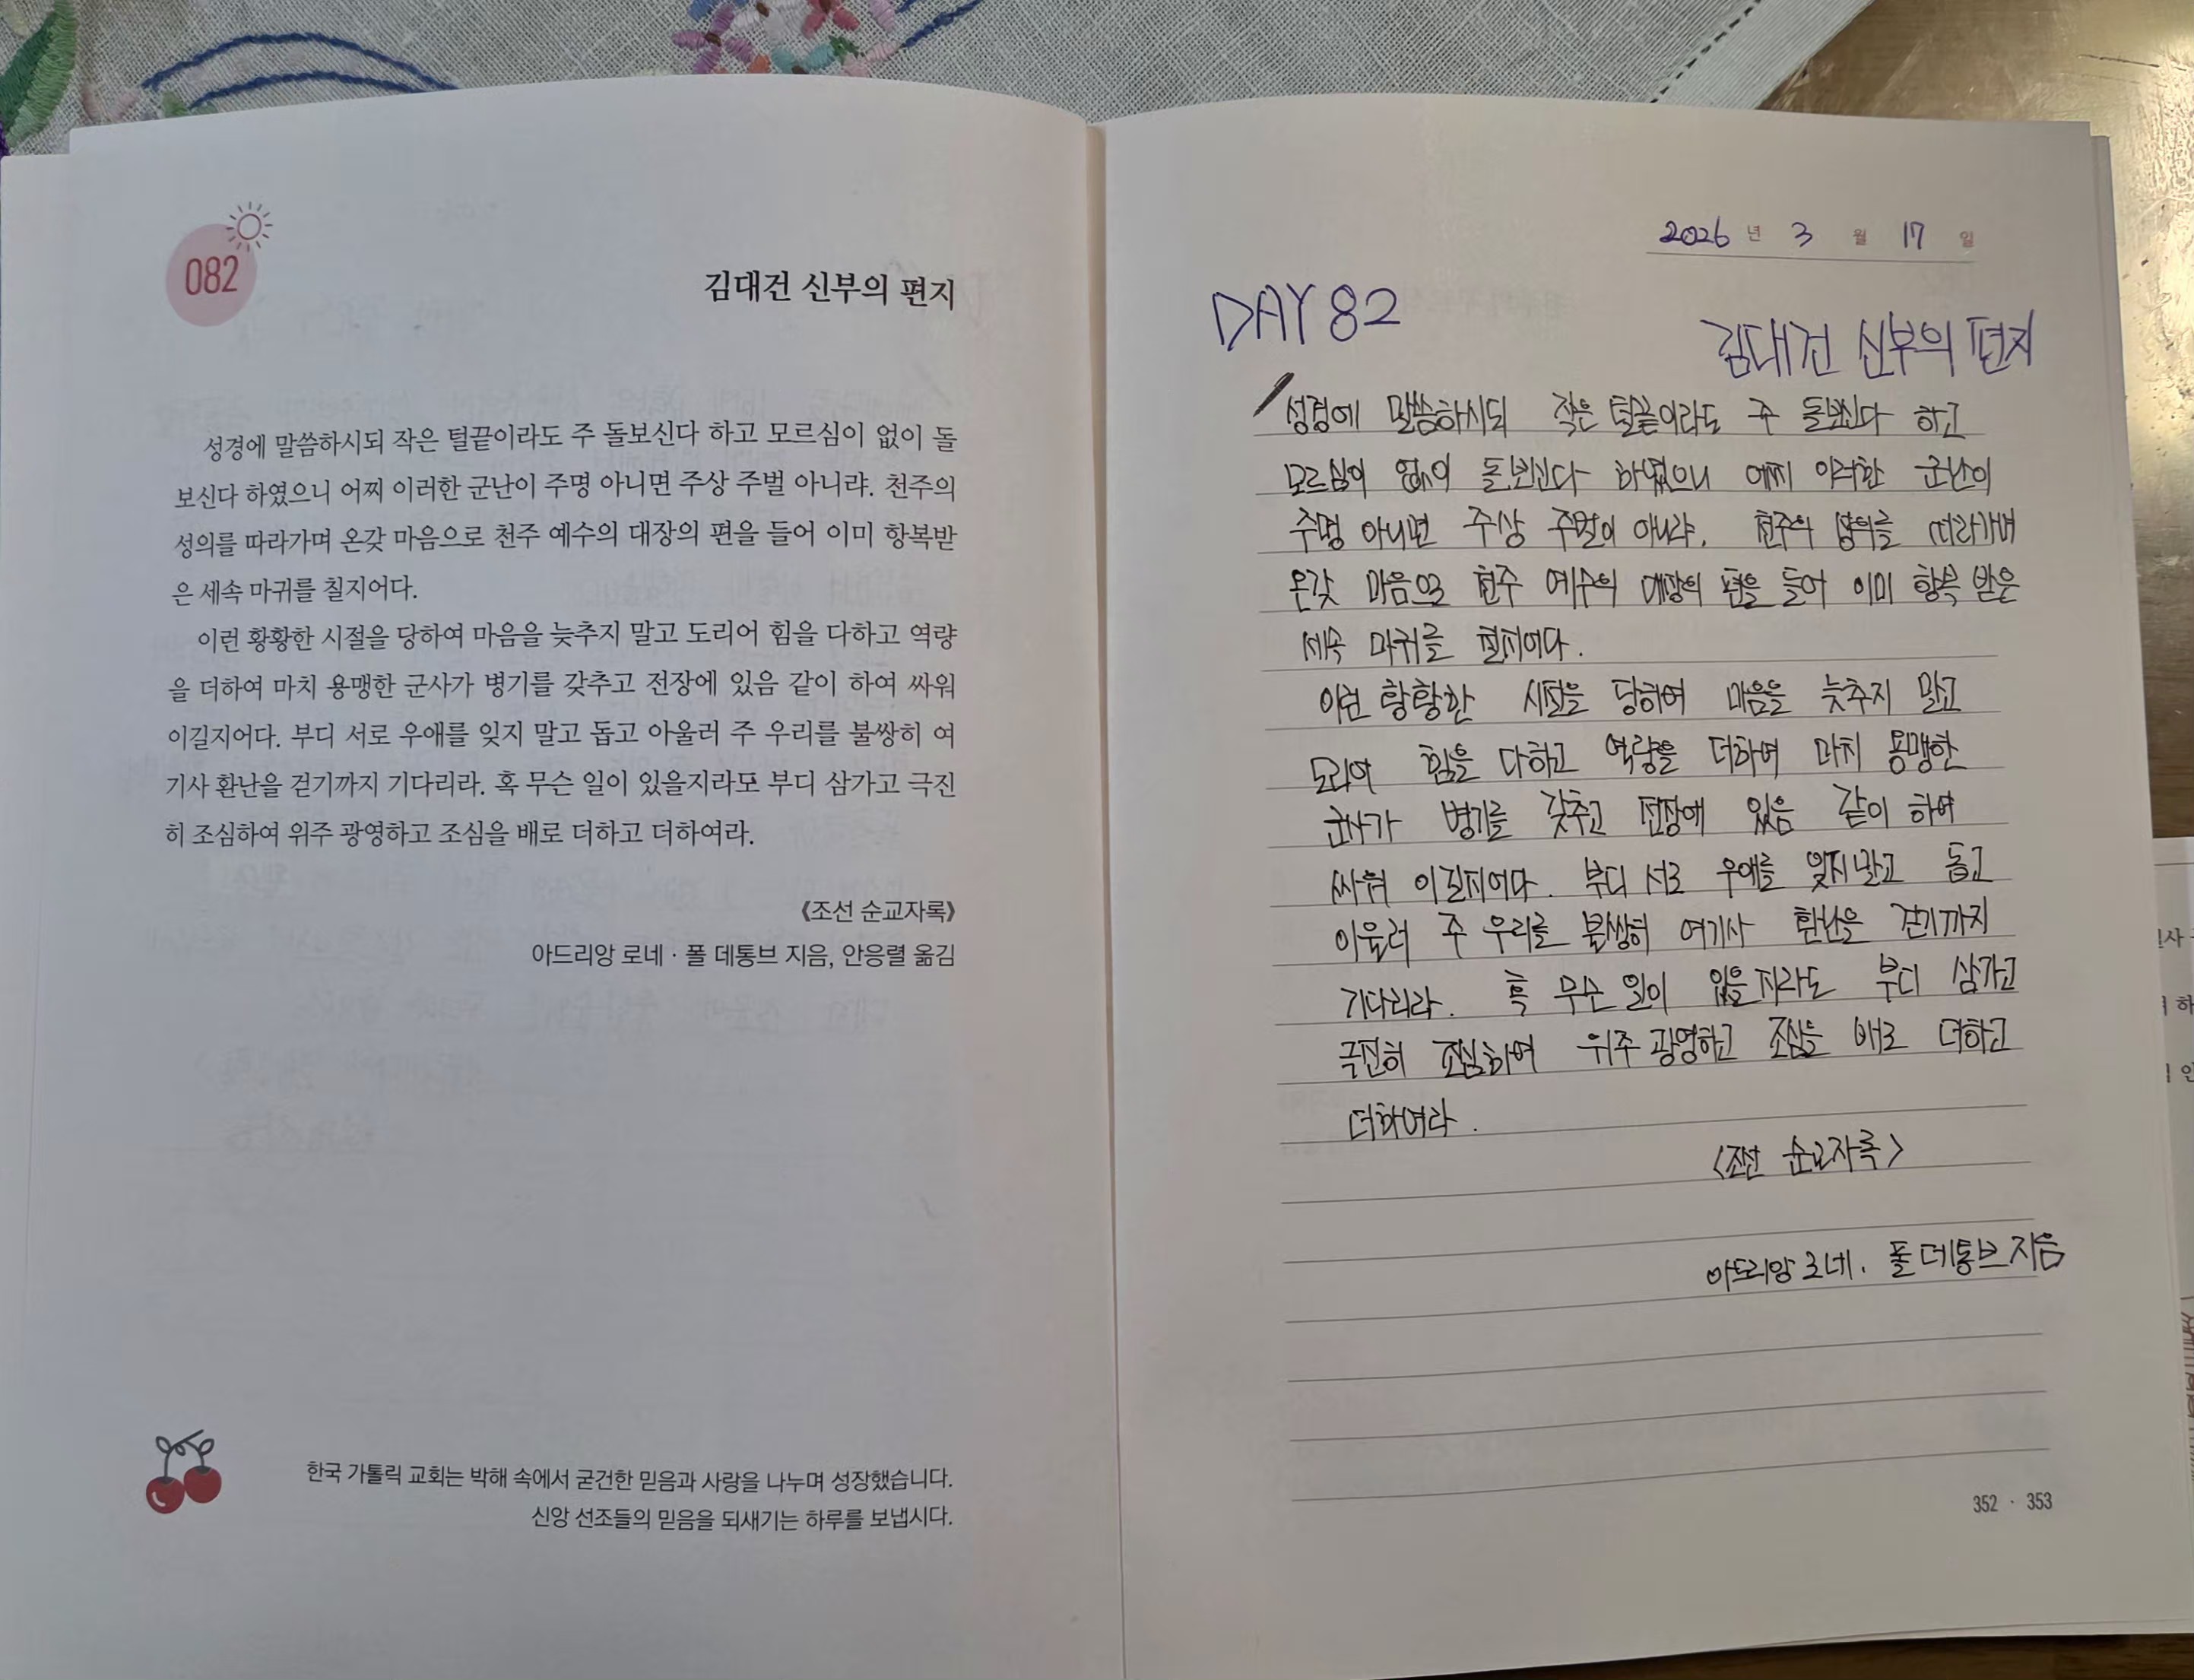 082
김대건 신부의 편지
성경에 말씀하시되 작은 털끝이라도 주 돌보신다 하고 모르심이 없이 돌
보신다 하였으니 어찌 이러한 군난이 주명 아니면 주상 주벌 아니랴. 천주의
성의를 따라가며 온갖 마음으로 천주 예수의 대장의 편을 들어 이미 항복받
은 세속 마귀를 칠지어다.
이런 황황한 시절을 당하여 마음을 늦추지 말고 도리어 힘을 다하고 역량
을 더하여 마치 용맹한 군사가 병기를 갖추고 전장에 있음 같이 하여 싸워
이길지어다. 부디 서로 우애를 잊지 말고 돕고 아울러 주 우리를 불쌍히 여
기사 환난을 걷기까지 기다리라. 혹 무슨 일이 있을지라도 부디 삼가고 극진
히 조심하여 위주 광영하고 조심을 배로 더하고 더하여라.
《조선 순교자록》
아드리앙 로네 · 폴 데통브 지음, 안응렬 옮김
한국 가톨릭 교회는 박해 속에서 굳건한 믿음과 사랑을 나누며 성장했습니다.
신앙 선조들의 믿음을 되새기는 하루를 보냅시다.
2026 년 3 월 17 일
DAY 82
김대건 신부의 편지
성경에 말씀하시되 작은 털끝이라도 주 돌보신다 하고
모르심이 없이 돌보신다 하였으니 어찌 이러한 군난이
주명 아니면 주상 주벌이 아니랴. 천주의 성의를 따라가며
온갖 마음으로 천주 예수의 대장의 편을 들어 이미 항복 받은
세속 마귀를 칠지어다.
이런 황황한 시절을 당하여 마음을 늦추지 말고
도리어 힘을 다하고 역량을 더하여 마치 용맹한
군사가 병기를 갖추고 전장에 있음 같이 하여
싸워 이길지어다. 부디 서로 우애를 잊지 말고 돕고
아울러 주 우리를 불쌍히 여기사 환난을 걷기까지
기다리라. 혹 무슨 일이 있을지라도 부디 삼가고
극진히 조심하여 위주 광영하고 조심을 배로 더하고
더하여라.
<조선 순교자록>
아드리앙 로네. 폴 데통브 지음
352 · 353